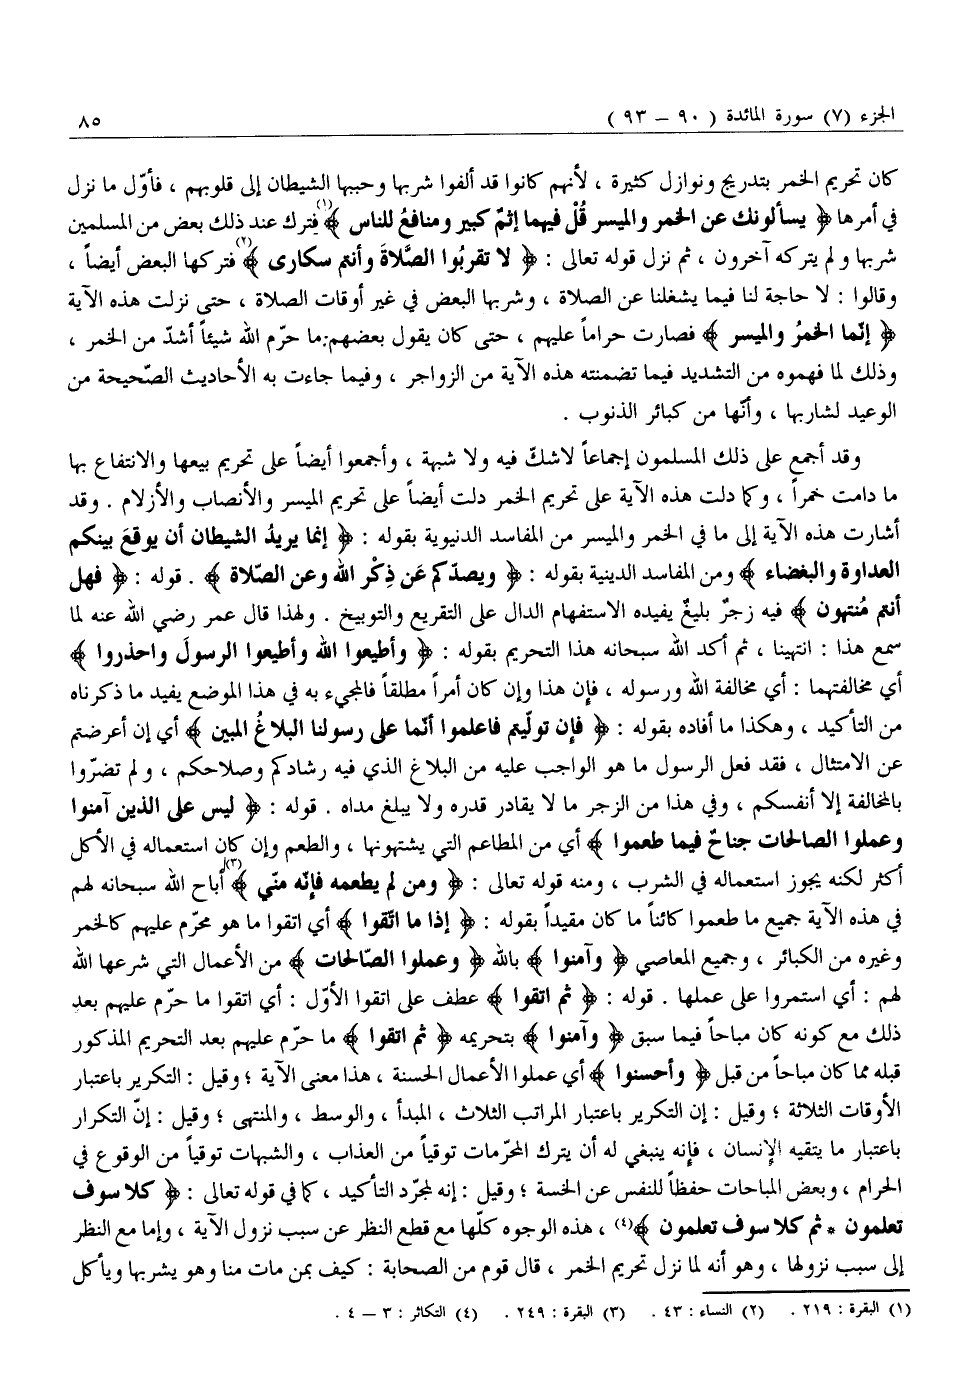 الجزء (٧) سورة المائدة ( ٩٠ – ٩٣ )
٨٥
كان تحريم الخمر بتدريج ونوازل كثيرة ، لأنهم كانوا قد ألفوا شربها وحببها الشيطان إلى قلوبهم ، فأوّل ما نزل
في أمرها ﴿ يسألونك عن الخمر والميسر قُلْ فيهما إثمٌ كبير ومنافعُ للناس ﴾(١) فترك عند ذلك بعض من المسلمين
شربها ولم يتركه آخرون ، ثم نزل قوله تعالى : ﴿ لا تقربُوا الصَّلاةَ وأنتم سكارى ﴾(٢) فتركها البعض أيضاً ،
وقالوا : لا حاجة لنا فيما يشغلنا عن الصلاة ، وشربها البعض في غير أوقات الصلاة ، حتى نزلت هذه الآية
﴿ إنّما الخمرُ والميسر ﴾ فصارت حراماً عليهم ، حتى كان يقول بعضهم:ما حرّم الله شيئاً أشدّ من الخمر ،
وذلك لما فهموه من التشديد فيما تضمنته هذه الآية من الزواجر ، وفيما جاءت به الأحاديث الصّحيحة من
الوعيد لشاربها ، وأنّها من كبائر الذنوب .
وقد أجمع على ذلك المسلمون إجماعاً لاشكّ فيه ولا شبهة ، وأجمعوا أيضاً على تحريم بيعها والانتفاع بها
ما دامت خمراً ، وكما دلت هذه الآية على تحريم الخمر دلت أيضاً على تحريم الميسر والأنصاب والأزلام . وقد
أشارت هذه الآية إلى ما في الخمر والميسر من المفاسد الدنيوية بقوله : ﴿ إنما يريدُ الشيطان أن يوقعَ بينكم
العداوة والبغضاء ﴾ ومن المفاسد الدينية بقوله : ﴿ ويصدّكم عَن ذِكْر الله وعن الصّلاة ﴾ . قوله : ﴿ فهل
أنتم مُنتهون ﴾ فيه زجرٌ بليغٌ يفيده الاستفهام الدال على التقريع والتوبيخ . ولهذا قال عمر رضي الله عنه لما
سمع هذا : انتهينا ، ثم أكد الله سبحانه هذا التحريم بقوله : ﴿ وأطيعوا الله وأطيعوا الرسولَ واحذروا ﴾
أي مخالفتهما : أي مخالفة الله ورسوله ، فإن هذا وإن كان أمراً مطلقاً فالمجيء به في هذا الموضع يفيد ما ذكرناه
من التأكيد ، وهكذا ما أفاده بقوله : ﴿ فإن تولّيتم فاعلموا أنّما على رسولنا البلاغُ المبين ﴾ أي إن أعرضتم
عن الامتثال ، فقد فعل الرسول ما هو الواجب عليه من البلاغ الذي فيه رشادكم وصلاحكم ، ولم تضرّوا
بالمخالفة إلا أنفسكم ، وفي هذا من الزجر ما لا يقادر قدره ولا يبلغ مداه . قوله : ﴿ ليس على الذين آمنوا
وعملوا الصالحات جناحٌ فيما طعموا ﴾ أي من المطاعم التي يشتهونها ، والطعم وإن كان استعماله في الأكل
أكثر لكنه يجوز استعماله في الشرب ، ومنه قوله تعالى : ﴿ ومن لم يطعمه فإنّه منّي ﴾(٣) أباح الله سبحانه لهم
في هذه الآية جميع ما طعموا كائناً ما كان مقيداً بقوله : ﴿ إذا ما اتّقوا ﴾ أي اتقوا ما هو محرّم عليهم كالخمر
وغيره من الكبائر ، وجميع المعاصي ﴿ وآمنوا ﴾ بالله ﴿ وعملوا الصّالحات ﴾ من الأعمال التي شرعها الله
لهم : أي استمروا على عملها . قوله : ﴿ ثم اتقوا ﴾ عطف على اتقوا الأوّل : أي اتقوا ما حرّم عليهم بعد
ذلك مع كونه كان مباحاً فيما سبق ﴿ وآمنوا ﴾ بتحريمه ﴿ ثم اتقوا ﴾ ما حرّم عليهم بعد التحريم المذكور
قبله مما كان مباحاً من قبل ﴿ وأحسنوا ﴾ أي عملوا الأعمال الحسنة ، هذا معنى الآية ؛ وقيل : التكرير باعتبار
الأوقات الثلاثة ؛ وقيل : إن التكرير باعتبار المراتب الثلاث ، المبدأ ، والوسط ، والمنتهى ؛ وقيل : إنّ التكرار
باعتبار ما يتقيه الإنسان ، فإنه ينبغي له أن يترك المحرّمات توقياً من العذاب ، والشبهات توقياً من الوقوع في
الحرام ، وبعض المباحات حفظاً للنفس عن الخسة ؛ وقيل : إنه لمجرّد التأكيد ، كما في قوله تعالى : ﴿ كلا سوف
تعلمون * ثم كلا سوف تعلمون ﴾(٤) ، هذه الوجوه كلّها مع قطع النظر عن سبب نزول الآية ، وإما مع النظر
إلى سبب نزولها ، وهو أنه لما نزل تحريم الخمر ، قال قوم من الصحابة : كيف بمن مات منا وهو يشربها ويأكل
(١) البقرة : ٢١٩ . (٢) النساء : ٤٣ . (٣) البقرة : ٢٤٩ . (٤) التكاثر : ٣ – ٤ .